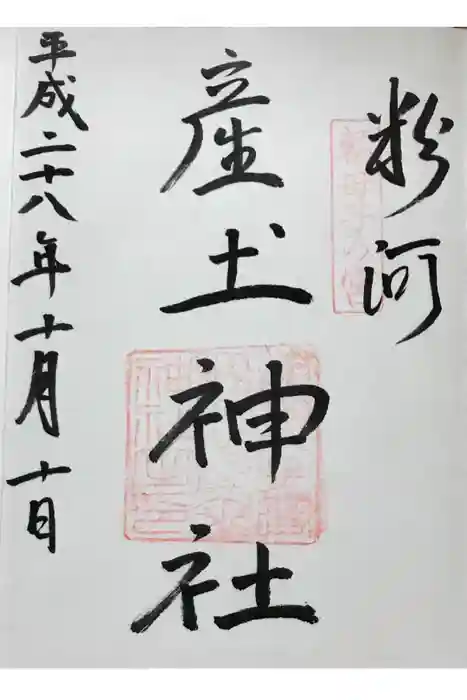 粉河
産土神社
平成二十八年十月十日